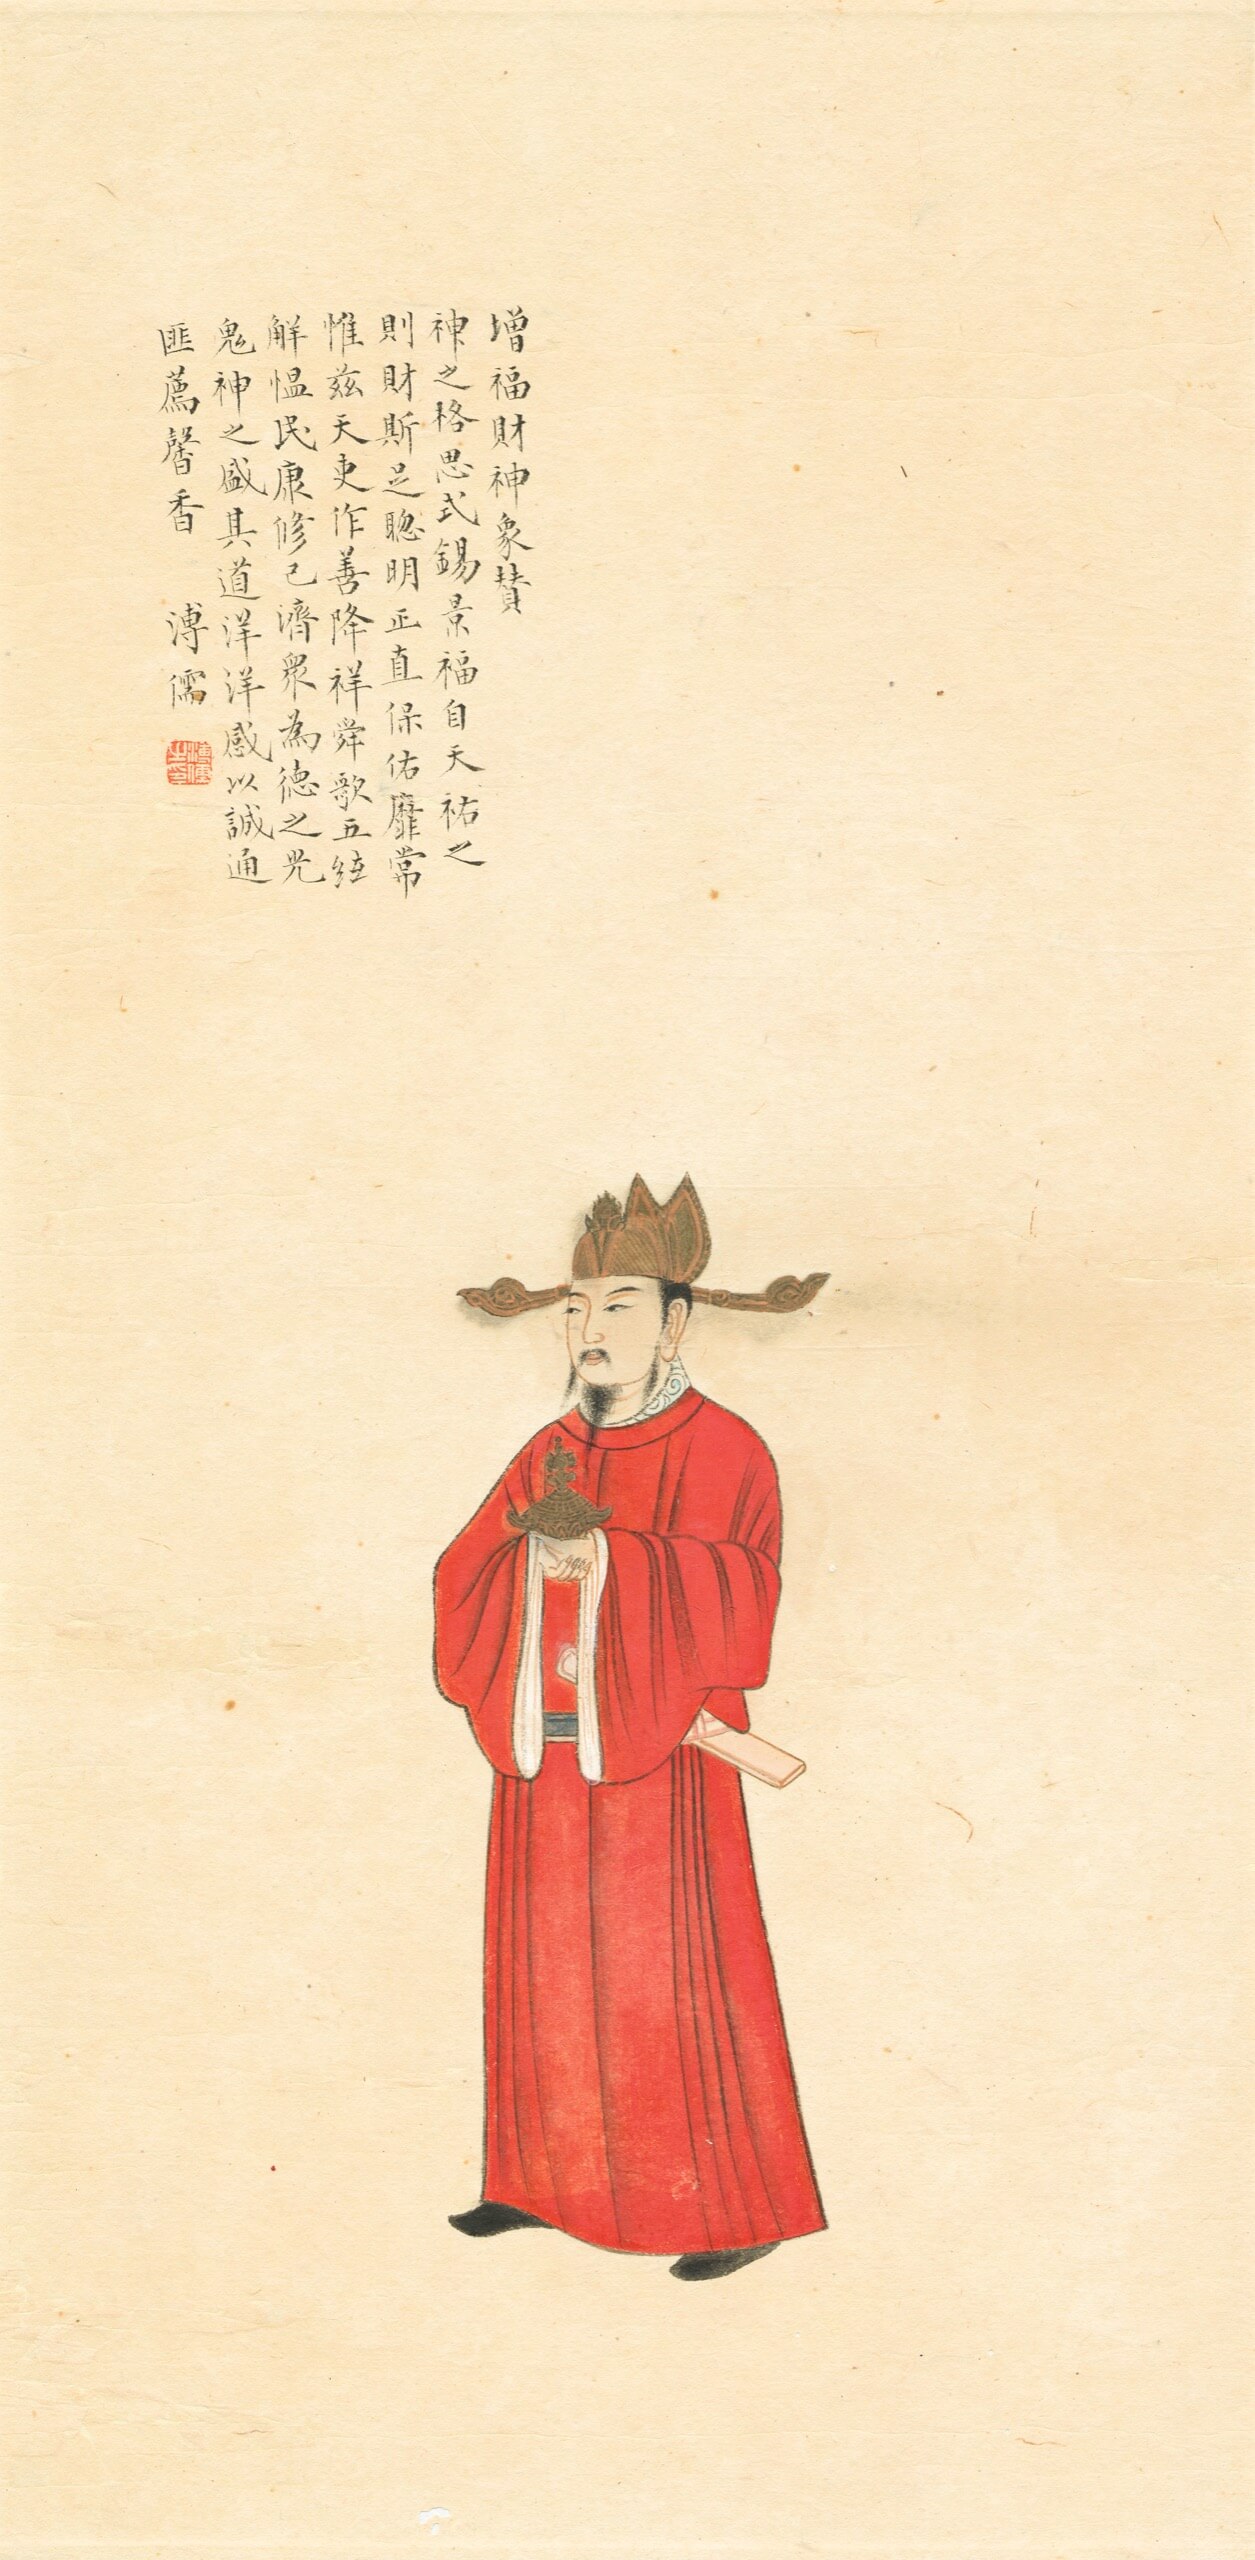 增福財神象贊
神之格思式錫景福自天祐之
則財斯足聰明正直保佑靡常
惟茲天吏作善降祥舜歌五絃
解愠民康修己濟眾為德之光
鬼神之盛其道洋洋感以誠通
匪薦馨香
溥儒
溥儒之印